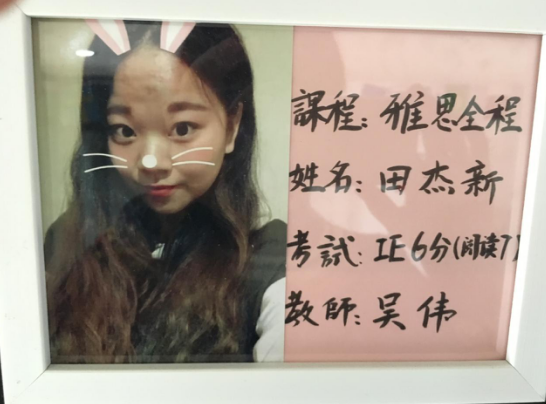 課程: 雅思全程
姓名: 田杰新
考試: IE6分(阅读7)
教師: 吴伟